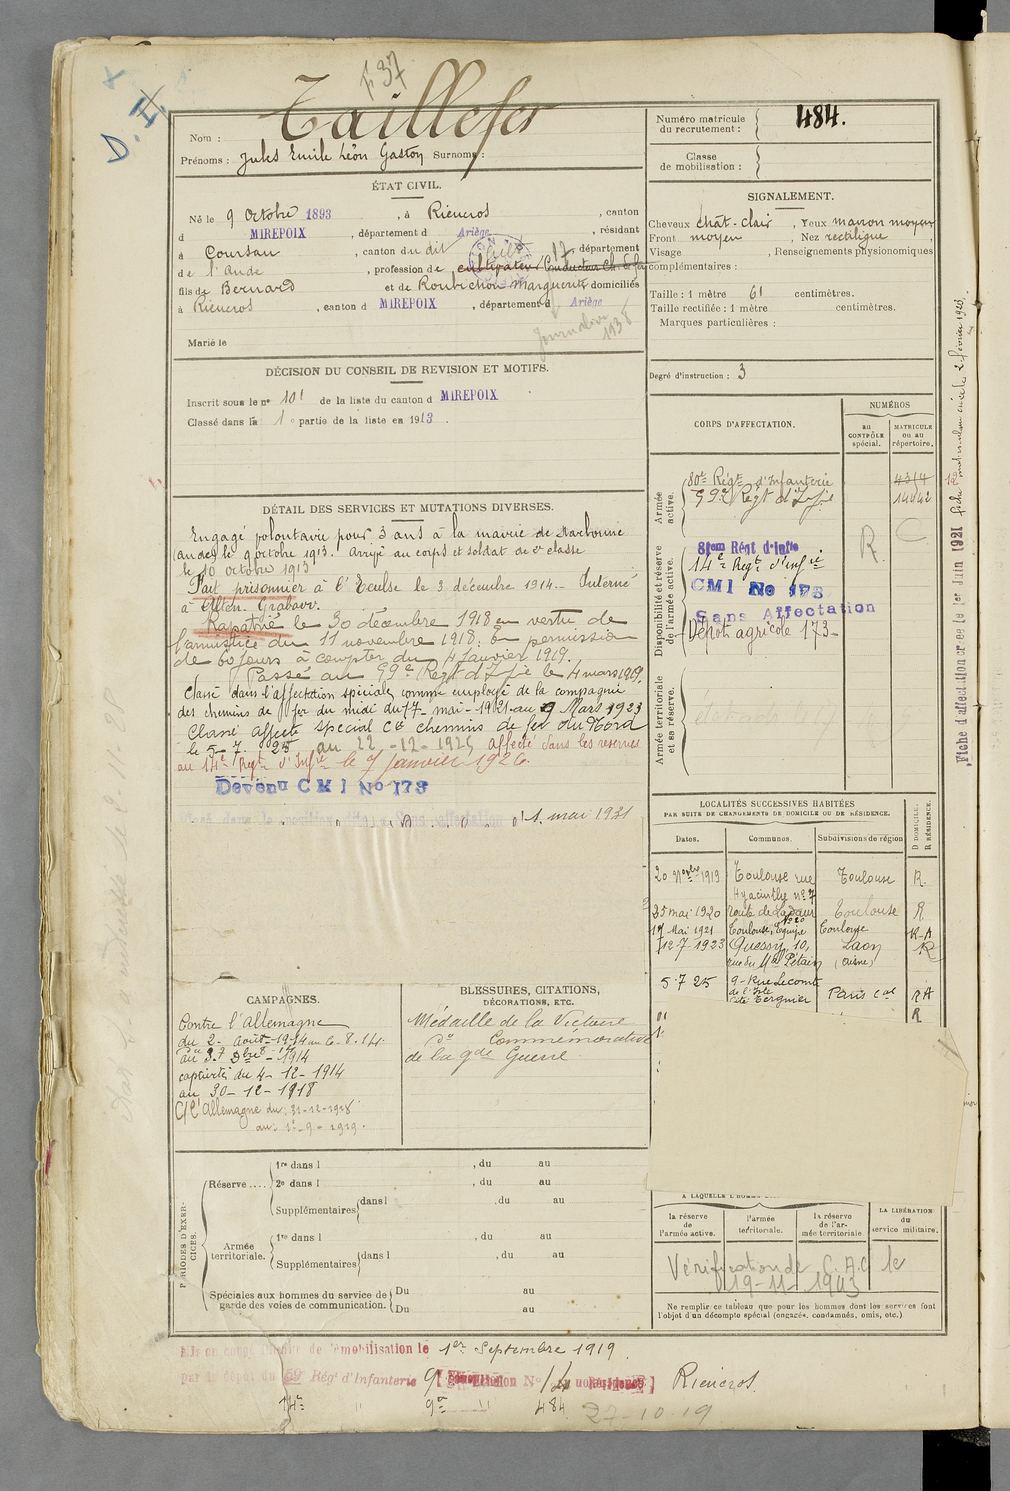 F 37
D. I.
Nom : Taillefer
Prénoms : Jules Emile Léon Gaston Surnoms :
Numéro matricule du recrutement : 484.
Classe de mobilisation :
ÉTAT CIVIL.
Né le 9 Octobre 1893, à Rieucros, canton
d MIREPOIX, département d Ariège, résidant
à Coursan, canton du dit, département
de l'Aude, profession de cultivateur Conducteur Ch. de fer
fils de Bernard et de Roubichou Marguerite domiciliés
à Rieucros, canton d MIREPOIX, département d Ariège
Journalier 1938
Marié le
SIGNALEMENT.
Cheveux chât-clair, Yeux marron moyen
Front moyen, Nez rectiligne,
Visage , Renseignements physionomiques
complémentaires :
Taille : 1 mètre 61 centimètres.
Taille rectifiée : 1 mètre centimètres.
Marques particulières :
Degré d'instruction : 3
DÉCISION DU CONSEIL DE REVISION ET MOTIFS.
Inscrit sous le n° 101 de la liste du canton d MIREPOIX
Classé dans la 1e partie de la liste en 1913.
DÉTAIL DES SERVICES ET MUTATIONS DIVERSES.
Engagé volontaire pour 3 ans à la mairie de Narbonne
(Aude) le 9 octobre 1913. Arrivé au corps et soldat de 2e classe
le 10 octobre 1913
Fait prisonnier à l'Ecluse le 3 décembre 1914. Interné
à Alten. Grabow.
Rapatrié le 30 décembre 1918 en vertu de
l'armistice du 11 novembre 1918: En permission
de 60 jours à compter du 4 Janvier 1919.
Passé au 59e Régt d'Infie le 4 mars 1919.
Classé dans l'affectation spéciale comme employé de la compagnie
des chemins de fer du midi du 17-mai-1921 au 9 Mars 1923
Classé affecté spécial Cie chemins de fer du Nord
le 5-7. 25 au 22-12-1925 affecté dans les réserves
au 14e Régt d'Infie le 7 janvier 1926.
Devenu CMI No 173
1. mai 1931
CORPS D'AFFECTATION.
NUMÉROS
au CONTRÔLE spécial.
MATRICULE ou au répertoire.
Armée active.
80e Régt d'Infanterie 4314
59e Régt d'Infie 14442
Disponibilité et réserve de l'armée active.
81em Régt d'Infie
14e Régt d'Infie
R
CMI No 173
Sans Affectation
Dépôt agricole 173
Armée territoriale et sa réserve.
LOCALITÉS SUCCESSIVES HABITÉES
PAR SUITE DE CHANGEMENTS DE DOMICILE OU DE RÉSIDENCE.
Dates. Communes. Subdivisions de région D DOMICILE. R RÉSIDENCE.
20 Nbre 1919 Toulouse rue Hyacinthe n° 7 Toulouse R.
25 mai 1920 route de Lavaur N° 20 Toulouse R
17 Mai 1921 Toulouse, Equipe Toulouse R-A
12-7-1923 Quessy, 10, rue du Mal Pétain Laon (Aisne) R
5.7 25 9- Rue Lecomte de l'Isle Cité Tergnier Paris cal RA
R
CAMPAGNES.
Contre l'Allemagne
du 2. Août-1914 au 6-8.14.
au 3. Dbre-1914
captivité du 4-12-1914
au 30-12-1918
C/ l'Allemagne du: 31-12-1918
au: 1er-9-1919.
BLESSURES, CITATIONS,
DÉCORATIONS, ETC.
Médaille de la Victoire
do Commémorative
de la gde Guerre.
PÉRIODES D'EXERCICES.
Réserve....
1re dans l , du au
2e dans l , du au
Supplémentaires dans l , du au
Armée territoriale.
1re dans l , du au
Supplémentaires dans l , du au
Spéciales aux hommes du service de garde des voies de communication.
Du au
Du au
A LAQUELLE L'HOMME
la réserve de l'armée active. l'armée territoriale. la réserve de l'armée territoriale. LA LIBÉRATION du service militaire.
Vérification de C.A.C le
19-11-1943
Ne remplir ce tableau que pour les hommes dont les services font
l'objet d'un décompte spécial (engagés, condamnés, omis, etc.)
Mis en congé illimité de démobilisation le 1er Septembre 1919.
par le dépôt du 59 Régt d'Infanterie Rieucros.
14e " 9e " 484
27-10-19
Fiche d'affectation créée le 1er Juin 1921